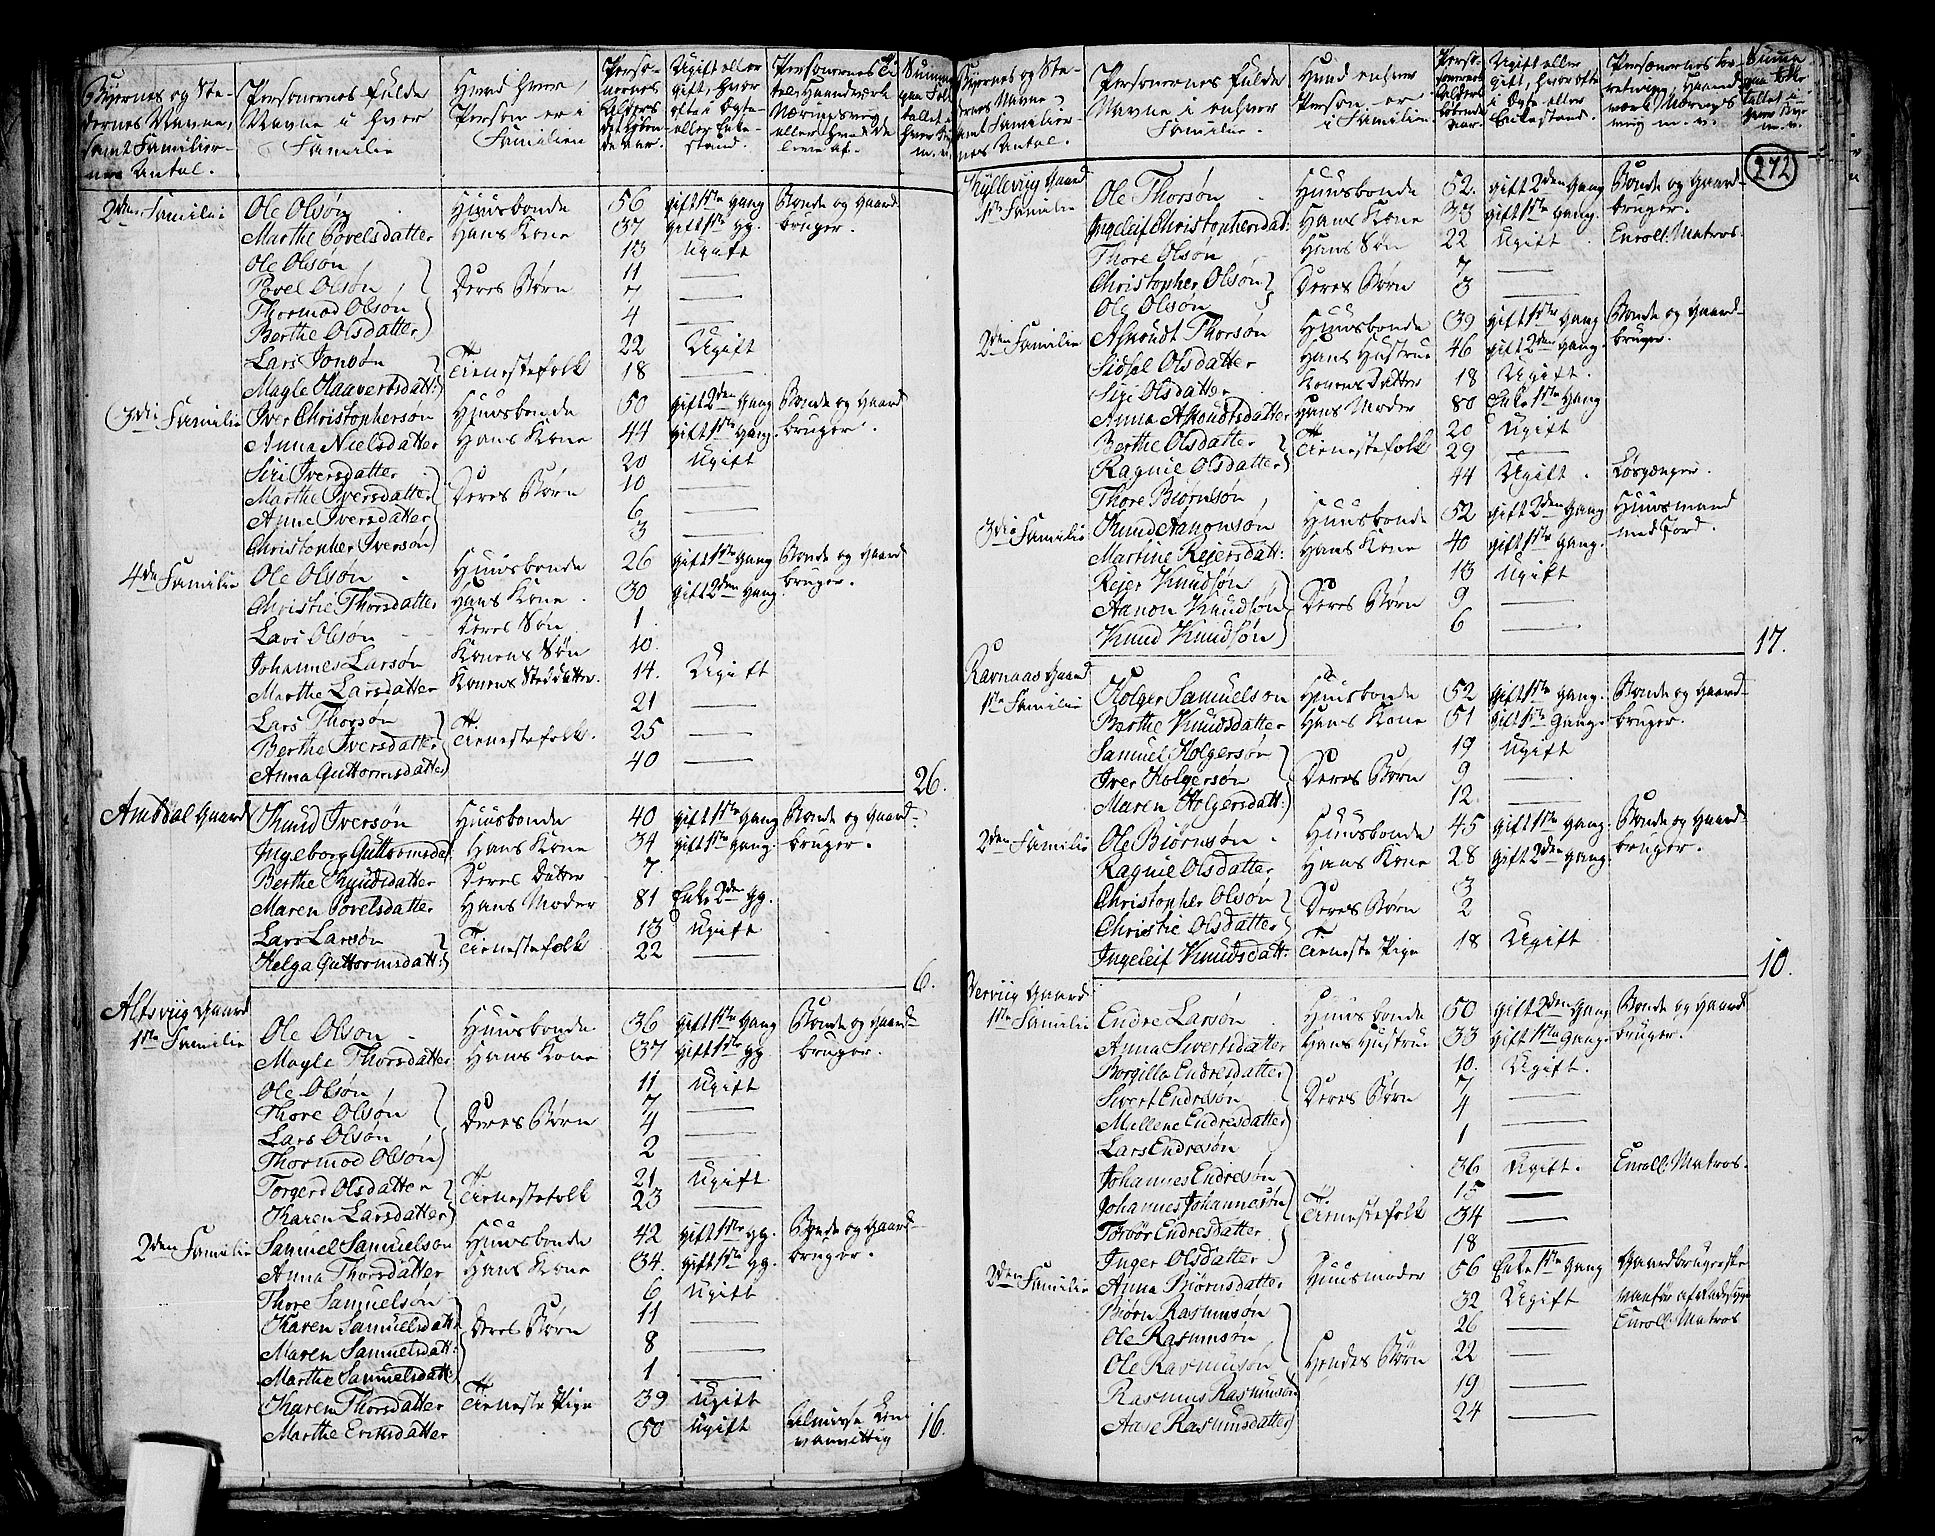 Byernes og Stedernes Navne, samt Familiernes Antal.
Personernes fulde Navne i hver Familie
Hvad hver Person er i Familien
Personernes Alders
Ugift eller gift, hvor ofte i Ægte- eller Enkestand.
Personernes Titel, Haandværk Næringsvej eller hvad de leve af.
2den Familie Ole Olsøn Huusbonde 56 gift 1ste Gang Bonde og Gaard
Marthe Povelsdatter Hans Kone 37 gift 1ste Gg. bruger.
Ole Olsøn 13 Ugift
Povel Olsøn Deres Børn 11 —
Thormod Olsøn 7 —
Berthe Olsdatter 4 —
Lars Jonsøn Tienestefolk 22 Ugift
Magle Haavertsdatt: 18 —
3die Familie Iver Christopherson Huusbonde 50 gift 2den Gang Bonde og Gaard
Anna Nielsdatter Hans Kone 44 gift 1ste Gang. bruger.
Siri Iversdatter 20 Ugift
Marthe Iversdatter Deres Børn 10 —
Anne Iversdatter 6 —
Christopher Iversøn 3 —
4de Familie Ole Olsøn Huusbonde 26 gift 1ste Gang Bonde og Gaard
Christie Thorsdatter Hans Kone 30 gift 2den Gang. bruger.
Lars Olsøn Deres Søn 1.
Johannes Larsøn Konens Søn 10.
Marthe Larsdatter Konens Steddatter. 14. Ugift
Lars Thorsøn 21 —
Berthe Iversdatter Tienestefolk. 25 —
Anna Guttormsdatter 40 —
26.
Amdal Gaard Knud Iversøn Huusbonde 40 gift 1ste Gang Bonde og Gaard-
Ingeborg Guttormsdat Hans Kone 34 gift 1ste Gang. bruger.
Berthe Knudsdatter Deres Datter 7.
Maren Povelsdatter Hans Moder 81 Enke 2den Gg.
Lars Larsøn Tienestefolk 13 Ugift
Helga Guttormsdatt: 22 —
6.
Altsviig Gaard
1ste Familie Ole Olsøn Huusbonde 36 gift 1ste Gang Bonde og Gaard-
Magle Thorsdatter Hans Kone 37 gift 1ste Gg. bruger.
Ole Olsøn 11 Ugift
Thore Olsøn Deres Børn 7 —
Lars Olsøn 4 —
Thormod Olsøn 2 —
Torgerd Olsdatter Tienestefolk 21 Ugift
Karen Larsdatter 23 —
2den Familie Samuel Samuelson Huusbonde 42 gift 1ste Gg. Bonde og Gaard-
Anna Thorsdatter Hans Kone 34. gift 1ste Gg. bruger.
Thore Samuelsøn 6 Ugift
Karen Samuelsdatt Deres Børn 11 —
Maren Samuelsdatt: 8 —
Marthe Samuelsdatt: 1 —
Karen Thorsdatter Tieneste Pige 39 Ugift
Marthe Eriksdatter 50 Ugift Almisse Lem vanvittig
16.
Byernes og Stedernes Navne, samt Familiernes Antal.
Personernes fulde Navne i enhver Familie.
Hvad enhver Person er i Familien.
Ugift eller gift, hvor ofte i Ægte eller Enkestand.
272
Kyllevig Gaard
1ste Familie Ole Thorsøn Huusbonde 52. gift 2den Gang Bonde og Gaard-
Ingeleif Christophersdat: Hans Kone 33 gift 1ste Gang. bruger.
Thore Olsøn Hans Søn 22 Ugift Enroll: Matros.
Christopher Olsøn Deres Børn 7 —
Ole Olsøn 3 —
2den Familie Askoudt Thorsøn Huusbonde 39 gift 1ste Gang Bonde og Gaard-
Sidsel Olsdatter Hans Hustrue 46 gift 2den Gang. bruger.
Siri Olsdatter Konens Datter 18 Ugift.
Anna Askoudtsdatter Hans Moder 80 Enke 1ste Gang
Berthe Olsdatter Tienestefolk 20 Ugift
Ragnie Olsdatter 29 —
Thore Biørnsøn 44 Ugift. Løsgænger.
3die Familie Knud Aanonsøn Huusbonde 52 gift 2den Gang Huusmand
Martine Reiersdatt: Hans Kone 40 gift 1ste Gang. med Jord.
Reier Knudsøn 13 Ugift
Aanon Knudsøn Deres Børn 9 —
Knud Knudsøn 6 —
17.
Ravnaas Gaard
1ste Familie Holger Samuelson Huusbonde 52 gift 1ste Gang. Bonde og Gaard-
Berthe Knudsdatter Hans Kone 51 gift 1ste Gang. bruger.
Samuel Holgersøn 19 Ugift
Iver Holgersøn Deres Børn 9 —
Maren Holgersdatt: 12. —
2den Familie Ole Biørnsøn Huusbonde 45 gift 1ste Gang. Bonde og Gaard-
Ragnie Olsdatter Hans Kone 28 gift 2den Gang. bruger.
Christopher Olsøn Deres Børn 3
Christie Olsdatter 2
Ingeleif Knudsdatt: Tieneste Pige 18 Ugift
10.
Verviig Gaard
1ste Familie Endre Larsøn Huusbonde 50 gift 2den Gang Bonde og Gaard
Anna Sivertsdatter Hans Hustrue 33 gift 1ste Gang. bruger.
Borgilla Endresdatter 10. Ugift.
Sivert Endresøn Deres Børn 7 —
Mallene Endresdatter 4 —
Lars Endresøn 1 —
Johannes Endresøn 36 Ugift. Enroll: Matros.
Johannes Johannesøn Tienestefolk 15 —
Torvør Endresdatter 34 —
Inger Olsdatter 18 —
2den Familie Anna Biørnsdatter Huusmoder 56 Enke 1ste Gang Gaardbrugerske
Biørn Rasmusøn 32 Ugift
Ole Rasmusøn 26 — Enroll: Matros
Ole Rasmusøn Hendes Børn 22 —
Rasmus Rasmusøn 19 —
Aase Rasmusdatter 24 —